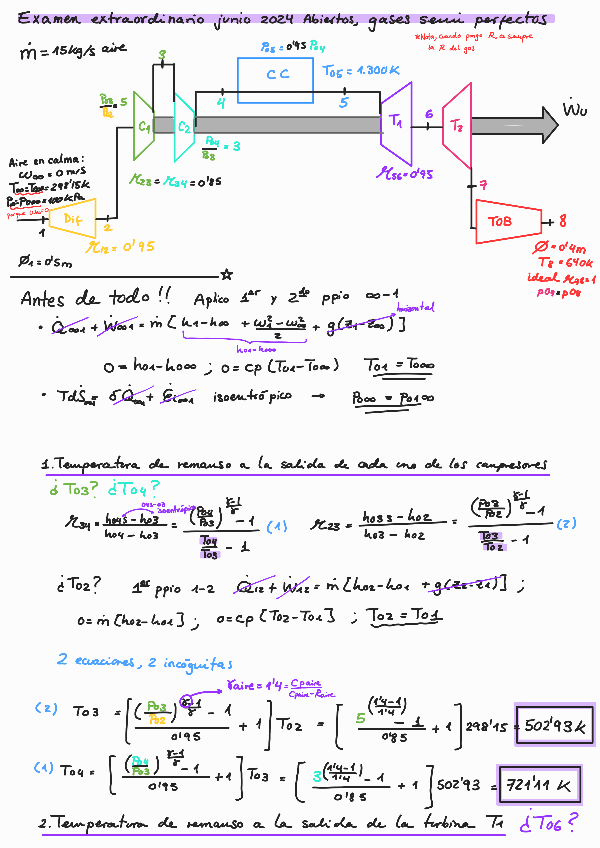 Examen extraordinario junio 2024 Abiertos, gases semi perfectos
*Nota, cuando ponga R, es siempre la R del gas
ṁ = 15 kg/s aire
P05 = 0'95 P04
T05 = 1.300K
CC
3
4
5
P03/P02 = 5
C1
C2
P04/P03 = 3
T1
6
T2
Ẇu
η23 = η34 = 0'85
η56 = 0'95
Aire en calma:
ω∞ = 0 m/s
T∞ = T0∞ = 298'15K
P∞ = P0∞ = 100 kPa
1
Dif
2
η12 = 0'95
Ø1 = 0'5m
7
TOB
8
Ø = 0'4m
T8 = 640K
ideal η78 = 1
p07 = p08
Antes de todo!! Aplico 1er y 2do ppio ∞-1
horizontal
• Q̇∞1 + Ẇ∞1 = ṁ [h1 - h∞ + (ω1² - ω∞²)/2 + g(z1 - z∞)]
h01 - h0∞
0 = h01 - h0∞ ; 0 = cp (T01 - T0∞) T01 = T0∞
• TdṠ∞1 = δQ̇∞1 + Ė∞1 isoentrópico → P0∞ = p01
1. Temperatura de remanso a la salida de cada uno de los compresores
¿T03? ¿T04?
isoentrópico
η34 = (h04s - h03)/(h04 - h03) = ((P04/P03)^((γ-1)/γ) - 1)/(T04/T03 - 1) (1) η23 = (h03s - h02)/(h03 - h02) = ((P03/P02)^((γ-1)/γ) - 1)/(T03/T02 - 1) (2)
¿T02? 1er ppio 1-2 Q̇12 + Ẇ12 = ṁ [h02 - h01 + g(z2 - z1)] ;
0 = ṁ [h02 - h01] ; 0 = cp [T02 - T01] ; T02 = T01
2 ecuaciones, 2 incógnitas
γaire = 1'4 = Cpaire/(Cpaire - Raire)
(2) T03 = [((P03/P02)^((γ-1)/γ) - 1)/0'95 + 1] T02 = [(5^((1'4-1)/1'4) - 1)/0'85 + 1] 298'15 = 502'93 K
(1) T04 = [((P04/P03)^((γ-1)/γ) - 1)/0'95 + 1] T03 = [(3^((1'4-1)/1'4) - 1)/0'85 + 1] 502'93 = 721'11 K
2. Temperatura de remanso a la salida de la turbina T1 ¿T06?